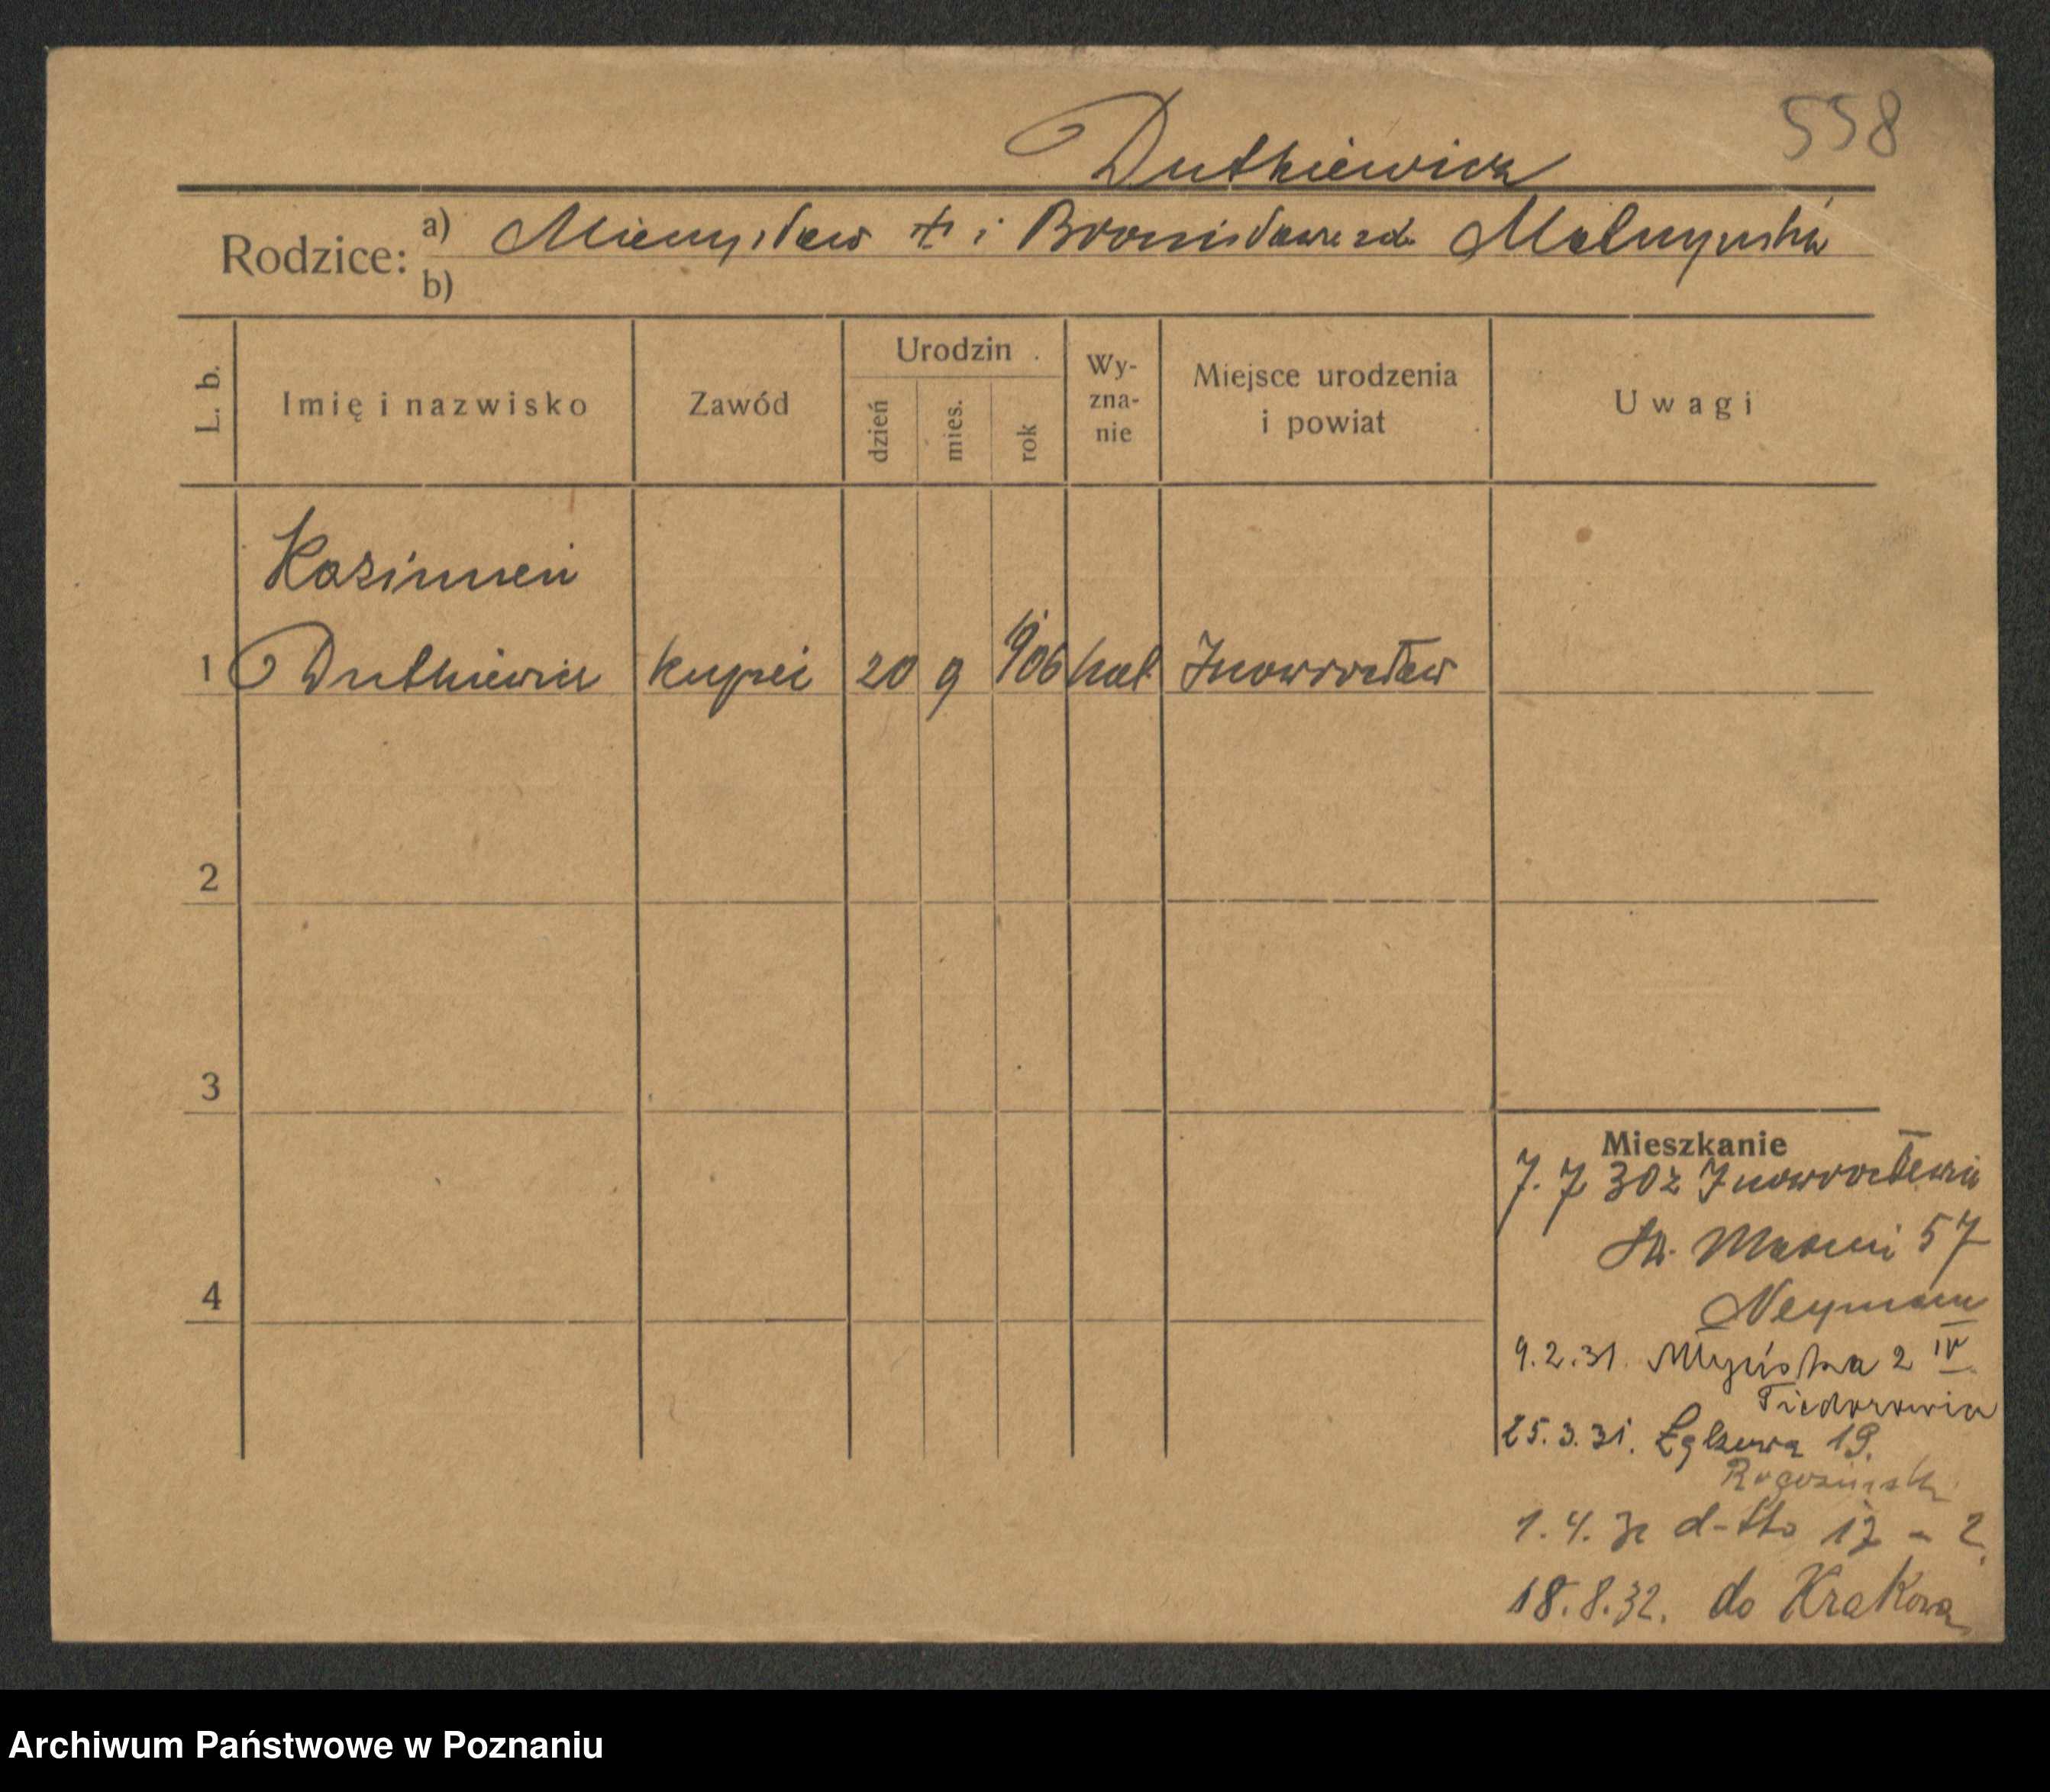 558
Dutkiewicz
Rodzice: a) Mieczysław i Bronisława zd.
b)
L. b.
Imię i nazwisko
Zawód
Urodzin
dzień
mies.
rok
Wy-
zna-
nie
Miejsce urodzenia
i powiat
Uwagi
Kazimierz
1 Dutkiewicz kupiec 20 9 906 kat Inowrocław
2
3
4
Mieszkanie
7. 7 30 z Inowrocławia
Św. Marcin 57
Neyman
9.2.31. Młyńska 2 IV
25.3.31. 19.
1.4. d-tto 17 - 2.
18.8.32. do Krakowa
Archiwum Państwowe w Poznaniu